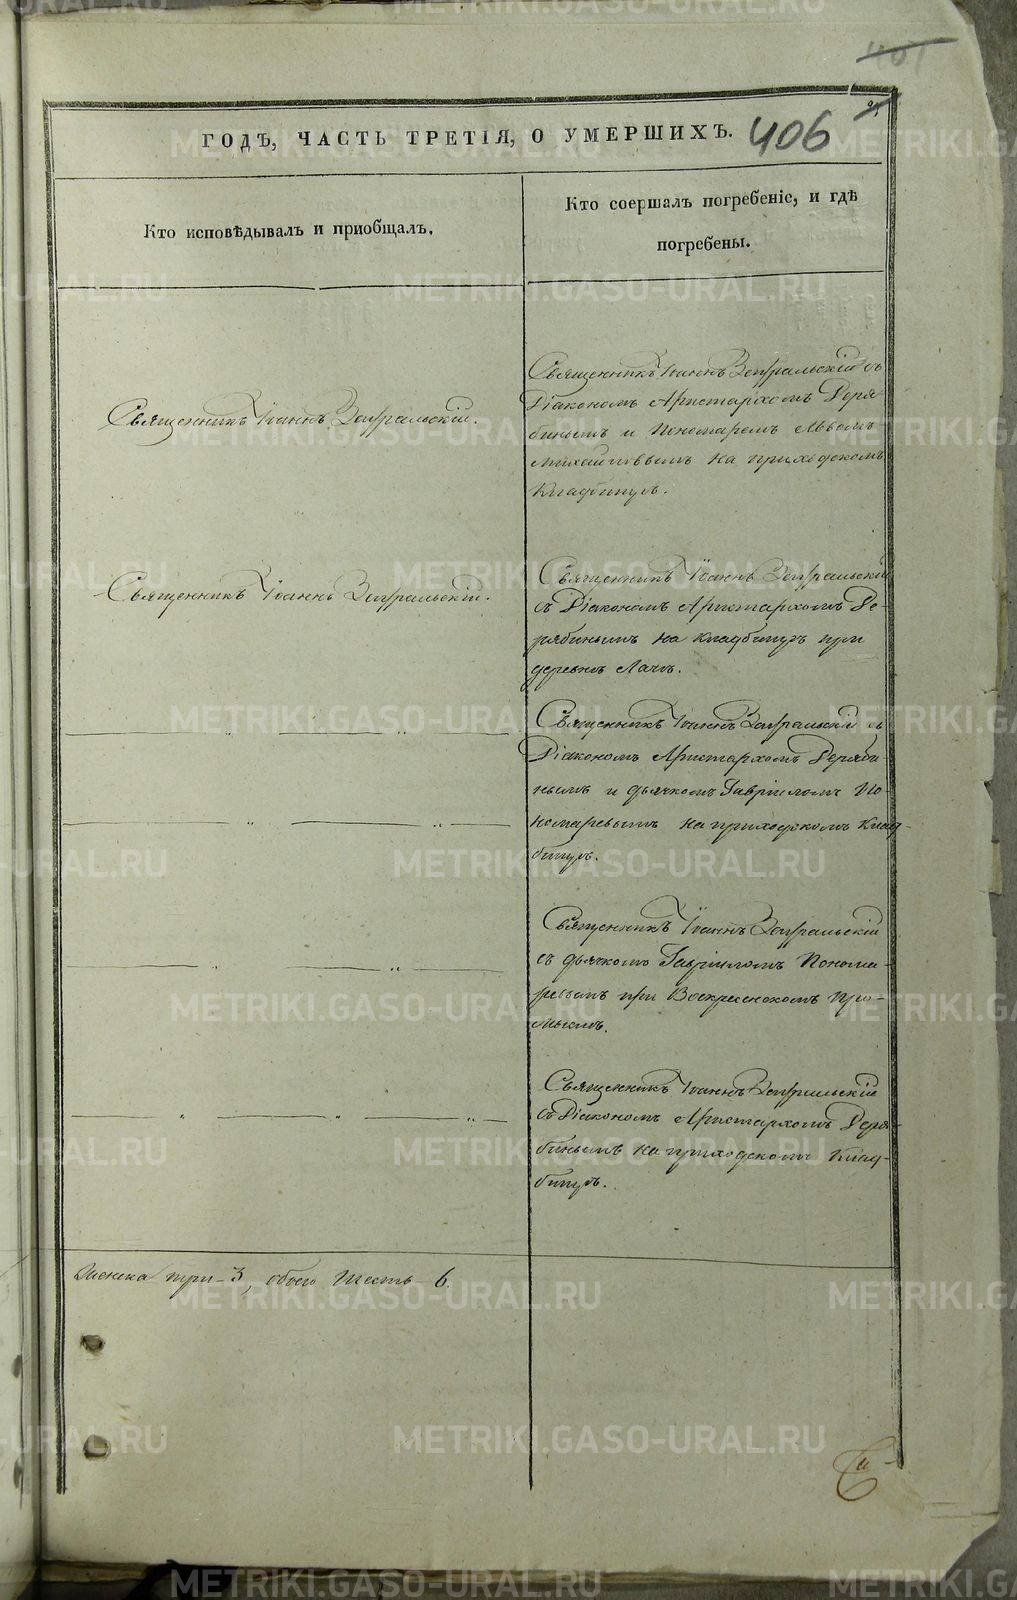 401
ГОДЪ, ЧАСТЬ ТРЕТІЯ, О УМЕРШИХЪ.
406
Кто исповѣдывалъ и приобщалъ.
Кто соершалъ погребеніе, и гдѣ
погребены.
Священникъ Іоаннъ Зауральскій.
Священникъ Іоаннъ Зауральскій съ
Діакономъ Аристархомъ Деря
бинымъ и Пономаремъ Львомъ
Михайловымъ на приходскомъ
Кладбищѣ.
Священникъ Іоаннъ Зауральскій.
Священникъ Іоаннъ Зауральскій
съ Діакономъ Аристархомъ Де-
рябинымъ на кладбищѣ при
деревнѣ
Священникъ Іоаннъ Зауральскій съ
Діакономъ Аристархомъ Деряби-
нымъ и дьячкомъ Гавріиломъ По-
номаревымъ на приходскомъ Клад-
бищѣ.
Священникъ Іоаннъ Зауральскій
съ дьячкомъ Гавріиломъ Понома-
ревымъ при Воскресенскомъ Про-
мыслѣ.
Священникъ Іоаннъ Зауральскій
съ Діакономъ Аристархомъ Деря-
бинымъ на приходскомъ Клад-
бищѣ.
Женска три - 3, обоего шесть - 6.
METRIKI.GASO-URAL.RU